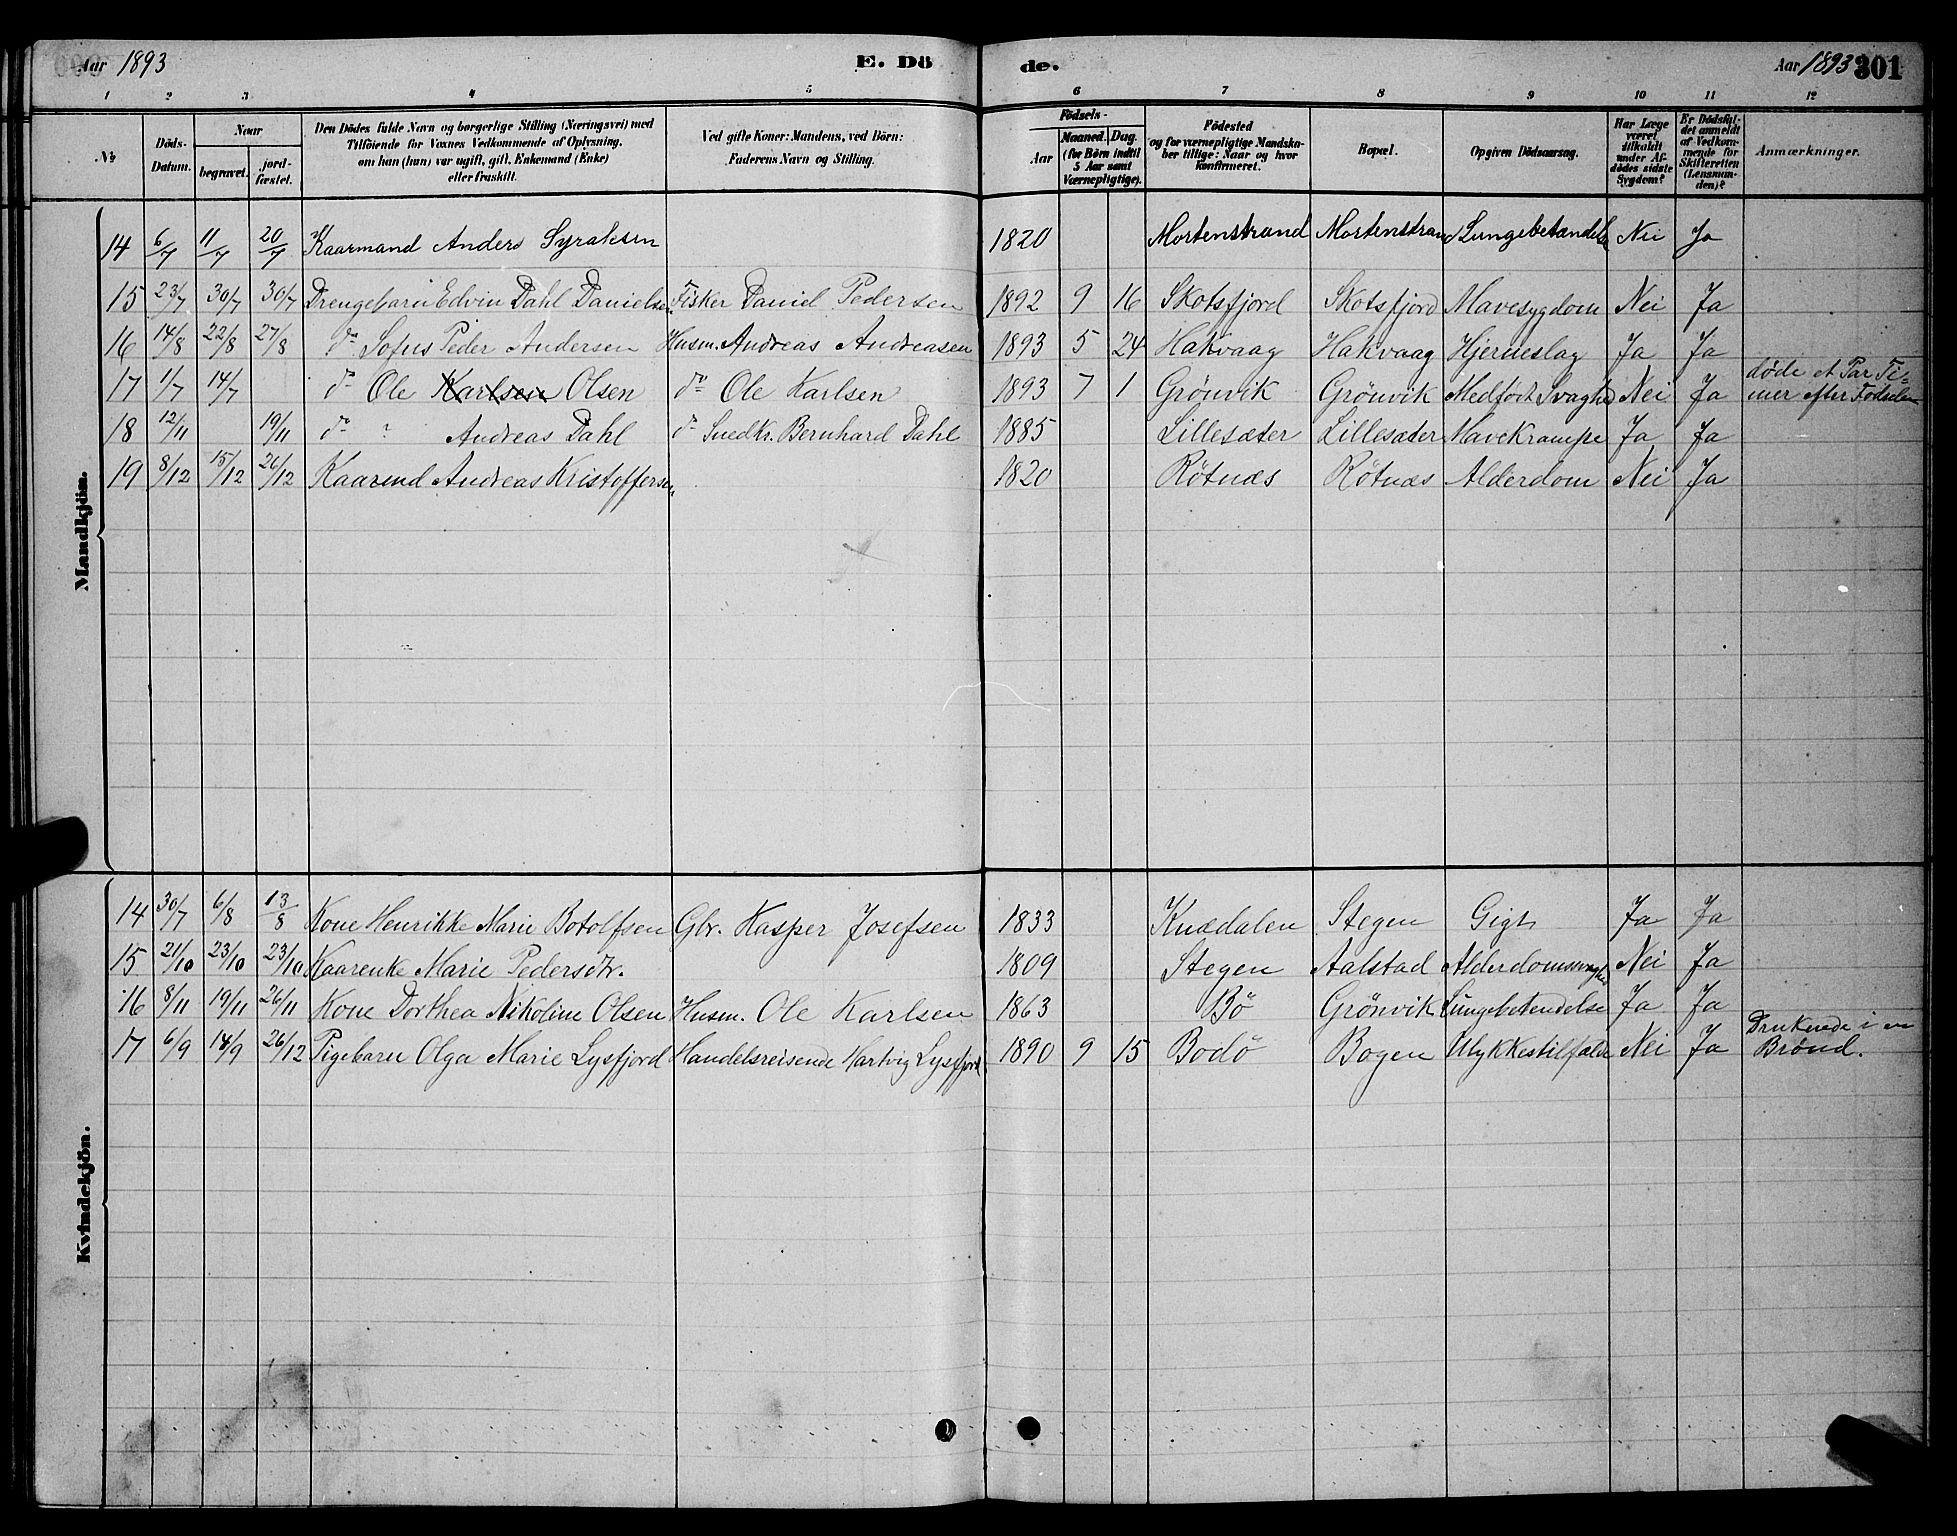 Aar 1893 E. Dö de. Aar 1893 301
1 2 3 4 5 6 7 8 9 10 11 12
№
Döds-Datum.
Naar
begravet.
jord-fæstet.
Den Dödes fulde Navn og borgerlige Stilling (Næringsvei) med
Tilföiende for Voxnes Vedkommende af Oplysning,
om han (hun) var ugift, gift, Enkemand (Enke)
eller fraskilt.
Ved gifte Koner: Mandens, ved Börn:
Faderens Navn og Stilling.
Födsels-
Aar
Maaned. Dag.
(for Börn indtil
5 Aar samt
Værnepligtige).
Födested
og for værnepligtige Mandska-
ber tillige: Naar og hvor
konfirmeret.
Bopæl.
Opgiven Dödsaarsag.
Har Læge
været
tilkaldt
under Af-
dödes sidste
Sygdom?
Er Dödsfal-
det anmeldt
af Vedkom-
mende for
Skifteretten
(Lensman-
den)?
Anmærkninger.
Mandkjön.
14 6/7 11/7 20/7 Kaarmand Anders Syraksen 1820 Mortenstrand Mortenstrand Lungebetændelse Nei Ja
15 23/7 30/7 30/7 Drengebarn Edvin Dahl Danielsen Fisker Daniel Pedersen 1892 9 16 Skotsfjord Skotsfjord Mavesygdom Nei Ja
16 14/8 22/8 27/8 do Sofus Peder Andersen Husm. Andreas Andreasen 1893 5 24 Hakvaag Hakvaag Hjerneslag Ja Ja
17 1/7 14/7 do Ole Karlsen Olsen do Ole Karlsen 1893 7 1 Grönvik Grönvik Medfödt Svaghed Nei Ja döde et Par Ti-
mer efter Födselen
18 12/11 19/11 do Andreas Dahl do Snedkr. Bernhard Dahl 1885 Lillesæter Lillesæter Mavekrampe Ja Ja
19 8/12 15/12 26/12 Kaarend Andreas Kristoffersen 1820 Rötnæs Rötnæs Alderdom Nei Ja
Kvindekjön.
14 30/7 6/8 13/8 Kone Henrikke Marie Botolfsen Gbr. Kasper Josefsen 1833 Knædalen Stegen Gigt Ja Ja
15 21/10 23/10 23/10 Kaarenke Marie Pedersdtr. 1809 Stegen Aalstad Alderdomssvaghed Nei Ja
16 8/11 19/11 26/11 Kone Dorthea Nikoline Olsen Husm. Ole Karlsen 1863 Bö Grönvik Lungebetendelse Ja Ja
17 6/9 14/9 26/12 Pigebarn Olga Marie Lysfjord Handelsreisende Hartvig Lysfjord 1890 9 15 Bodö Bogen Ulykkestilfælde Nei Ja Druknede i en
Brönd.